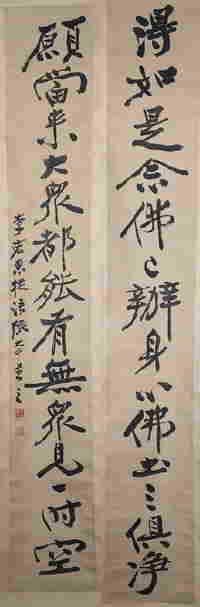 得如是念佛〻辦身心佛土三俱净
願當来大衆都能有無衆見一时空